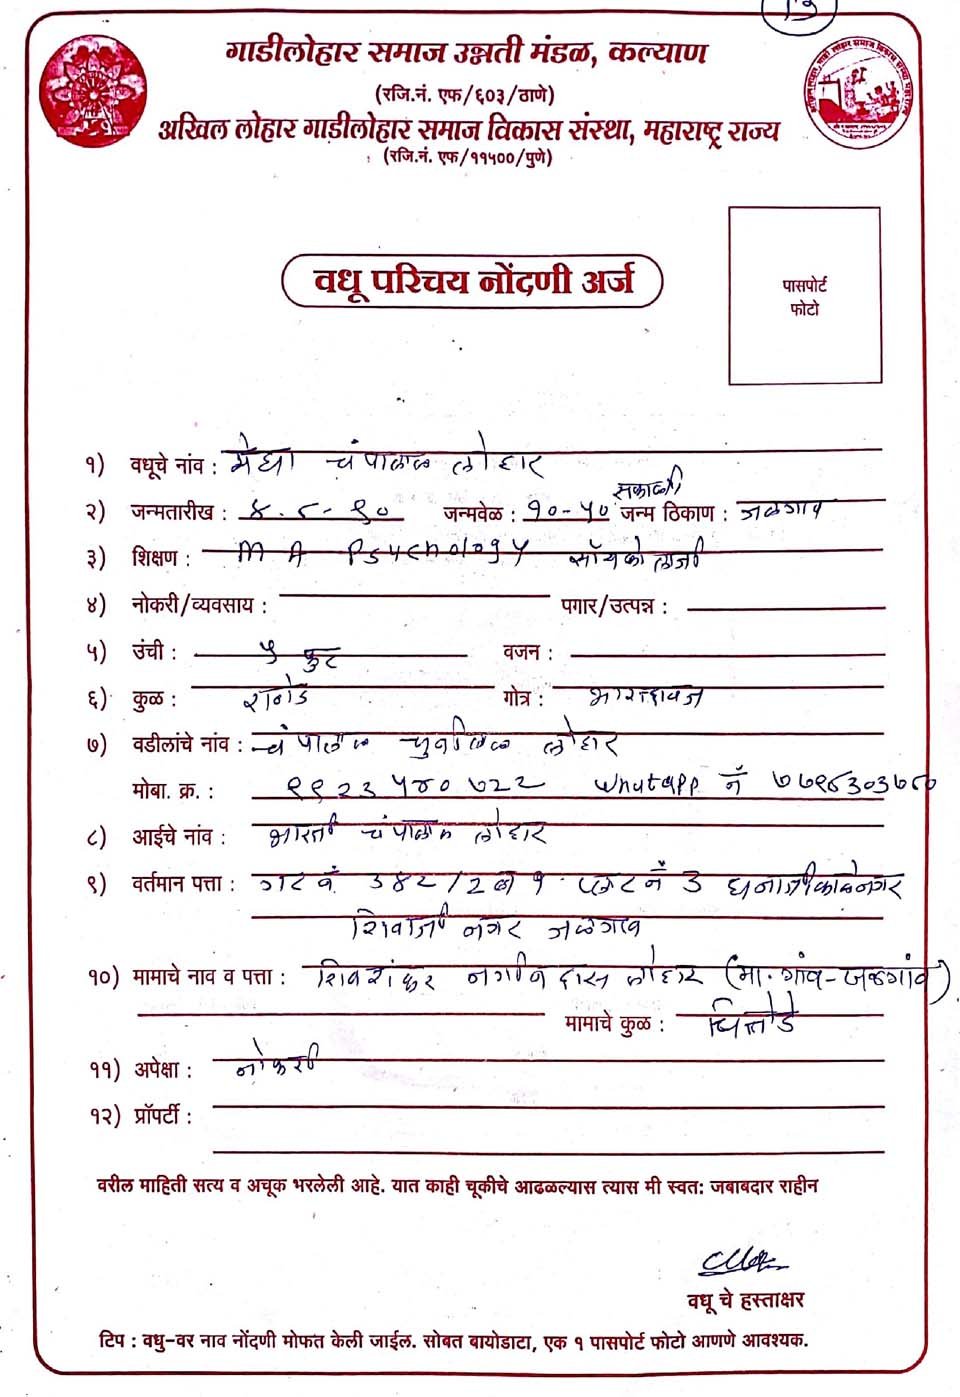 गाडीलोहार समाज उन्नती मंडळ, कल्याण
(रजि.नं. एफ/६०३/ठाणे)
अखिल लोहार गाडीलोहार समाज विकास संस्था, महाराष्ट्र राज्य
(रजि.नं. एफ/११५००/पुणे)
पासपोर्ट
फोटो
वधू परिचय नोंदणी अर्ज
१) वधूचे नांव : मेघा चंपालाल लोहार
२) जन्मतारीख : ४-८-९० जन्मवेळ : १०-५० सकाळी जन्म ठिकाण : जळगाव
३) शिक्षण : M A Psychology सॉयकोलाजी
४) नोकरी/व्यवसाय : पगार/उत्पन्न :
५) उंची : ५ फुट वजन :
६) कुळ : गोत्र : भारद्वाज
७) वडीलांचे नांव : चंपालाल लोहार
मोबा. क्र. : ९९२३५८०७२२ Whatapp नं
८) आईचे नांव : भारती चंपालाल लोहार
९) वर्तमान पत्ता : गट नं. ३४२/२ब१ प्लट नं ३ धनाजी काळे नगर
शिवाजी नगर जळगाव
१०) मामाचे नाव व पत्ता : शिवशंकर नगीनदास लोहार (मा. गांव-जळगांव)
मामाचे कुळ : चित्तोडे
११) अपेक्षा : नोकरी
१२) प्रॉपर्टी :
वरील माहिती सत्य व अचूक भरलेली आहे. यात काही चूकीचे आढळल्यास त्यास मी स्वत: जबाबदार राहीन
वधू चे हस्ताक्षर
टिप : वधु-वर नाव नोंदणी मोफत केली जाईल. सोबत बायोडाटा, एक १ पासपोर्ट फोटो आणणे आवश्यक.